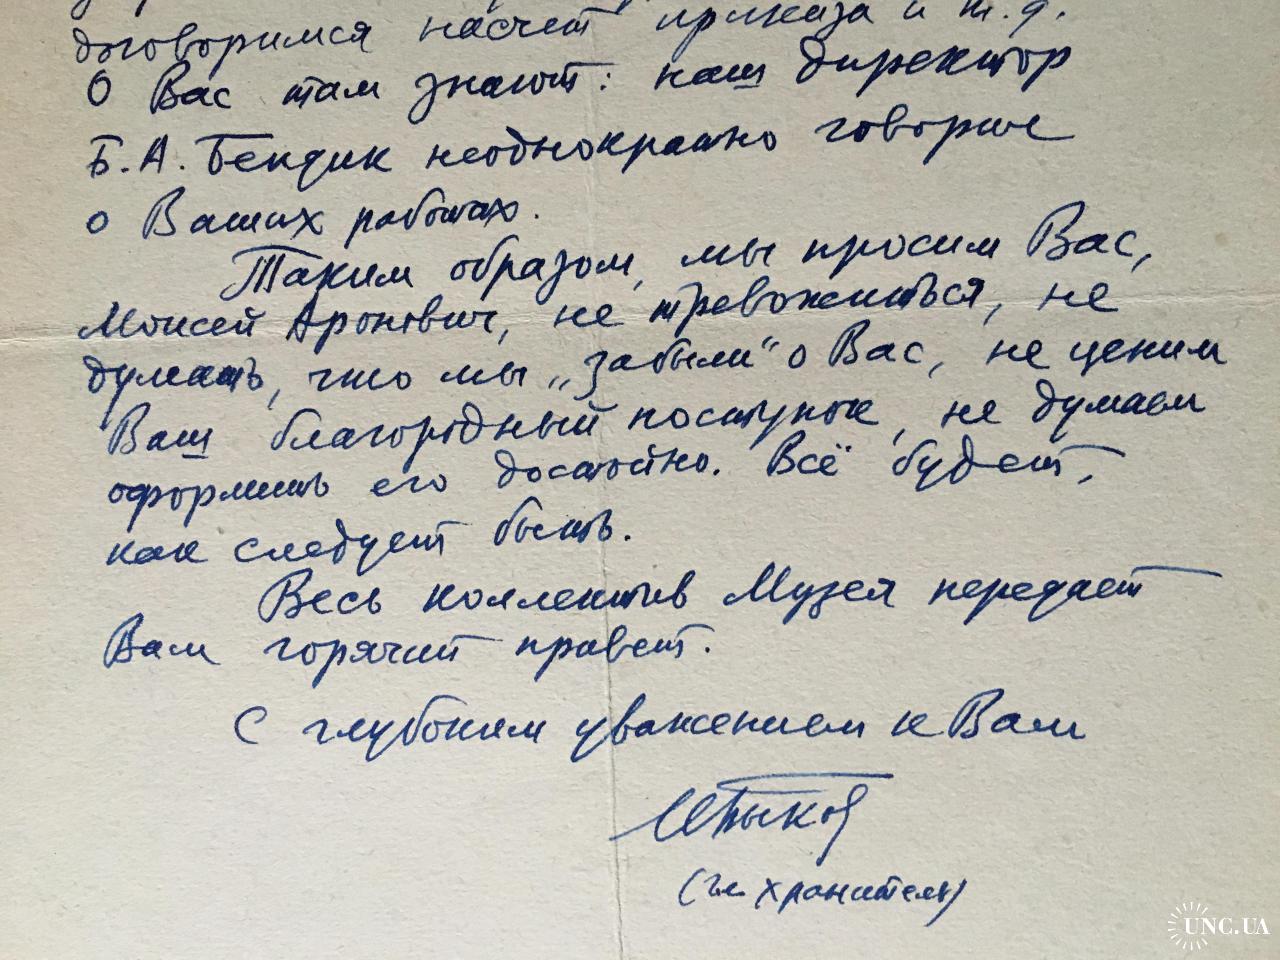 договоримся насчет приказа и т.д.
О Вас там знают: наш директор
Б.А. Бендик неоднократно говорил
о Ваших работах.
Таким образом, мы просим Вас,
Моисей Аронович, не тревожиться, не
думать, что мы „забыли" о Вас, не ценим
Ваш благородный поступок, не думаем
оформить его достойно. Всё будет,
как следует быть.
Весь коллектив Музея передает
Вам горячий привет.
С глубоким уважением к Вам
(гл. хранитель)
UNC.UA